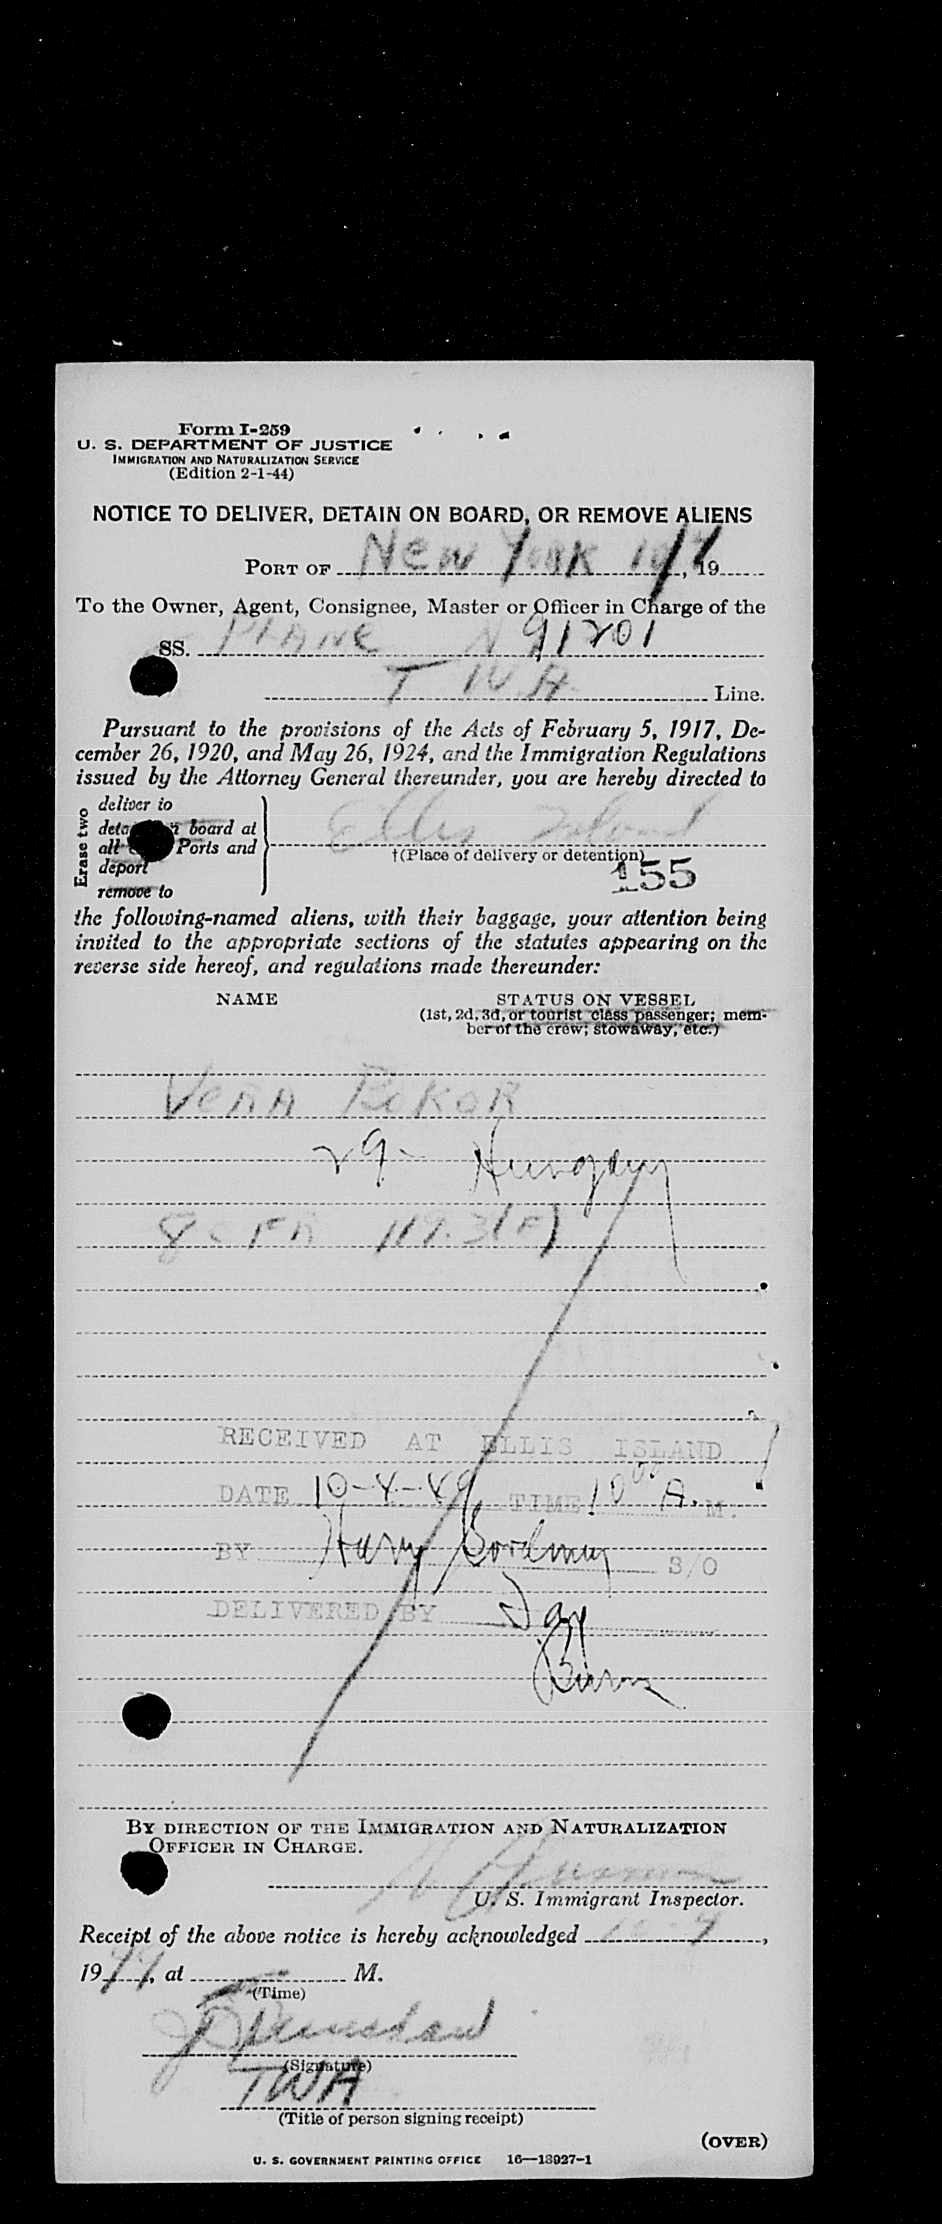 Form I-259
U. S. DEPARTMENT OF JUSTICE
IMMIGRATION AND NATURALIZATION SERVICE
(Edition 2-1-44)
NOTICE TO DELIVER, DETAIN ON BOARD, OR REMOVE ALIENS
PORT OF New York 10/4, 19
To the Owner, Agent, Consignee, Master or Officer in Charge of the
SS. PLANE N 91201
TWA Line.
Pursuant to the provisions of the Acts of February 5, 1917, De-
cember 26, 1920, and May 26, 1924, and the Immigration Regulations
issued by the Attorney General thereunder, you are hereby directed to
Erase two
deliver to
board at
all Ports and
deport
remove to
Ellis Island
†(Place of delivery or detention)
155
the following-named aliens, with their baggage, your attention being
invited to the appropriate sections of the statutes appearing on the
reverse side hereof, and regulations made thereunder:
NAME STATUS ON VESSEL
(1st, 2d, 3d, or tourist class passenger; mem-
ber of the crew; stowaway, etc.)
VERA BOKOR
29- Hungary
8 CFR 119.3(F)
RECEIVED AT ELLIS ISLAND
DATE 10-4-49 TIME 10 00 A. M.
BY Harry S/O
DELIVERED BY
BY DIRECTION OF THE IMMIGRATION AND NATURALIZATION
OFFICER IN CHARGE.
U. S. Immigrant Inspector.
Receipt of the above notice is hereby acknowledged 10-4,
1949, at M.
(Time)
(Signature)
TWA
(Title of person signing receipt)
(OVER)
U. S. GOVERNMENT PRINTING OFFICE 16—13927-1